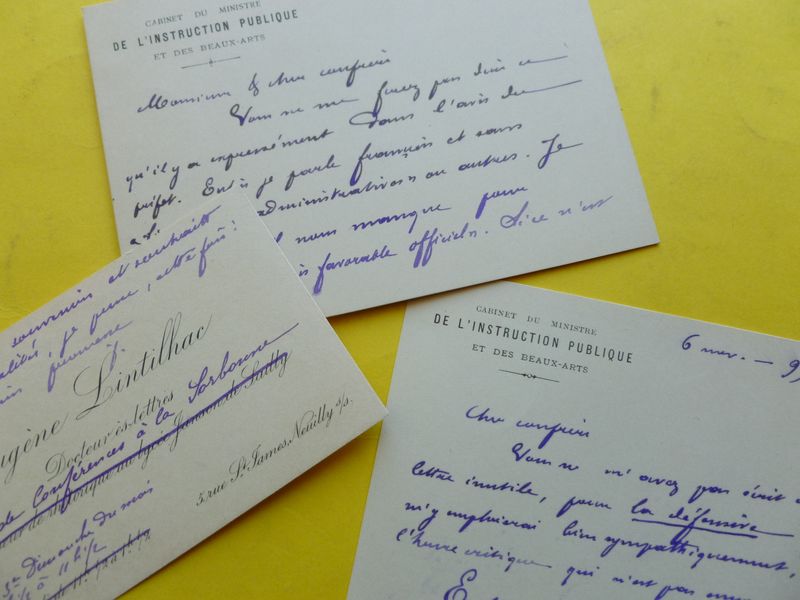 CABINET DU MINISTRE
DE L'INSTRUCTION PUBLIQUE
ET DES BEAUX-ARTS
Monsieur & cher confrère
Vous ne me ferez pas dire ce
qu'il y a expressément dans l'avis du
préfet. Et je parle français et sans
administratives ou autres. Je
nous manque pour
favorable officiels. Si ce n'est
souvenir et souhaits
je pense, cette fois :
Eugène Lintilhac
Docteur ès-lettres
de Conférences à la Sorbonne
de rhétorique au lycée Janson de Sailly
5, rue St James, Neuilly s/s.
Dimanche du mois
à 11 h 1/2
CABINET DU MINISTRE
DE L'INSTRUCTION PUBLIQUE
ET DES BEAUX-ARTS
6 nov. — 9
Cher confrère
Vous ne m'avez pas écrit
lettre inutile, pour la défensive
m'y emploierai bien sympathiquement,
l'heure critique qui n'est pas